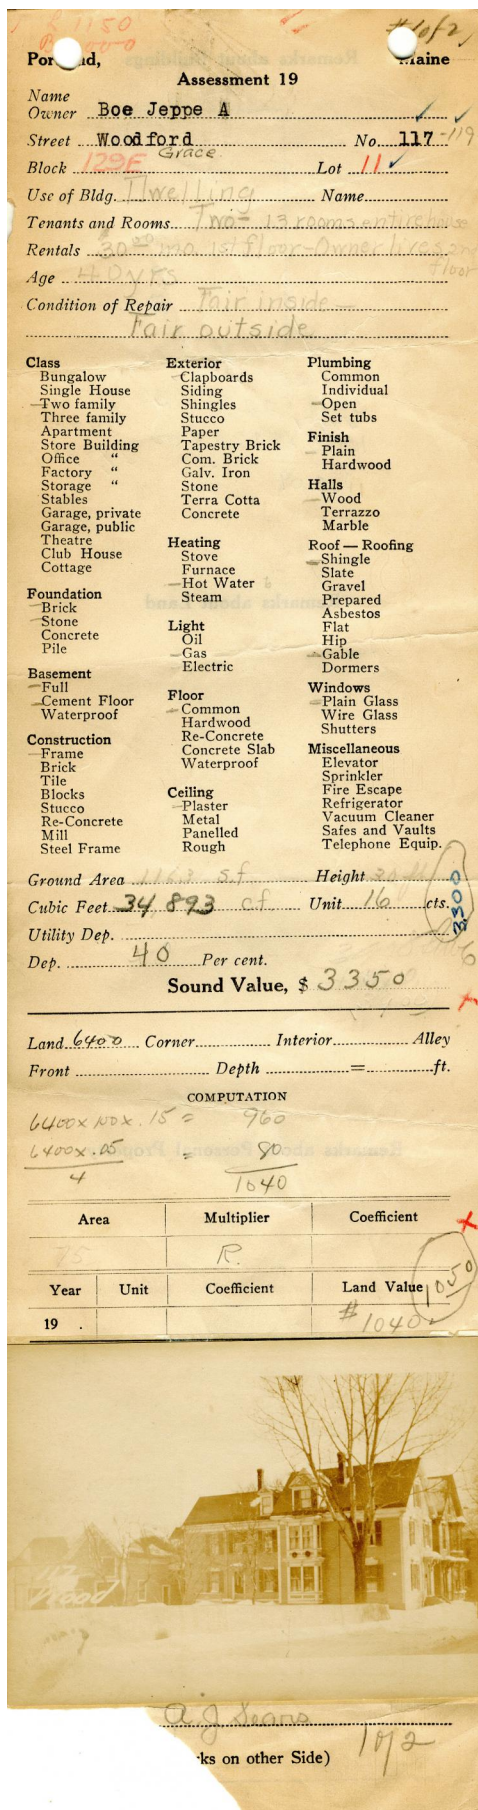 L 1150
B 3000
#1 of 2
Portland, Maine
Assessment 19
Name
Owner Boe Jeppe A
Street Woodford No. 117-119
Grace
Block 129F Lot 11
Use of Bldg. Dwelling Name
Tenants and Rooms Two - 13 rooms entire house
Rentals 30 mo 1st floor-Owner lives 2nd
floor
Age 40 yrs
Condition of Repair Fair inside -
Fair outside
Class
Bungalow
Single House
Two family
Three family
Apartment
Store Building
Office "
Factory "
Storage "
Stables
Garage, private
Garage, public
Theatre
Club House
Cottage
Foundation
Brick
Stone
Concrete
Pile
Basement
Full
Cement Floor
Waterproof
Construction
Frame
Brick
Tile
Blocks
Stucco
Re-Concrete
Mill
Steel Frame
Exterior
Clapboards
Siding
Shingles
Stucco
Paper
Tapestry Brick
Com. Brick
Galv. Iron
Stone
Terra Cotta
Concrete
Heating
Stove
Furnace
Hot Water
Steam
Light
Oil
Gas
Electric
Floor
Common
Hardwood
Re-Concrete
Concrete Slab
Waterproof
Ceiling
Plaster
Metal
Panelled
Rough
Plumbing
Common
Individual
Open
Set tubs
Finish
Plain
Hardwood
Halls
Wood
Terrazzo
Marble
Roof — Roofing
Shingle
Slate
Gravel
Prepared
Asbestos
Flat
Hip
Gable
Dormers
Windows
Plain Glass
Wire Glass
Shutters
Miscellaneous
Elevator
Sprinkler
Fire Escape
Refrigerator
Vacuum Cleaner
Safes and Vaults
Telephone Equip.
Ground Area 1163 s.f. Height 30
Cubic Feet 34 893 cf Unit 16 cts.
3300
Utility Dep.
Dep. 40 Per cent.
Sound Value, $ 3350
Land 6400 Corner Interior Alley
Front Depth = ft.
COMPUTATION
6400 x 100 x .15 = 960
6400 x .05 = 80
4 1040
Area Multiplier Coefficient
75 R.
1050
Year Unit Coefficient Land Value
19 . # 1040.
117
Wood
A.J Sears
1 of 2
ks on other Side)